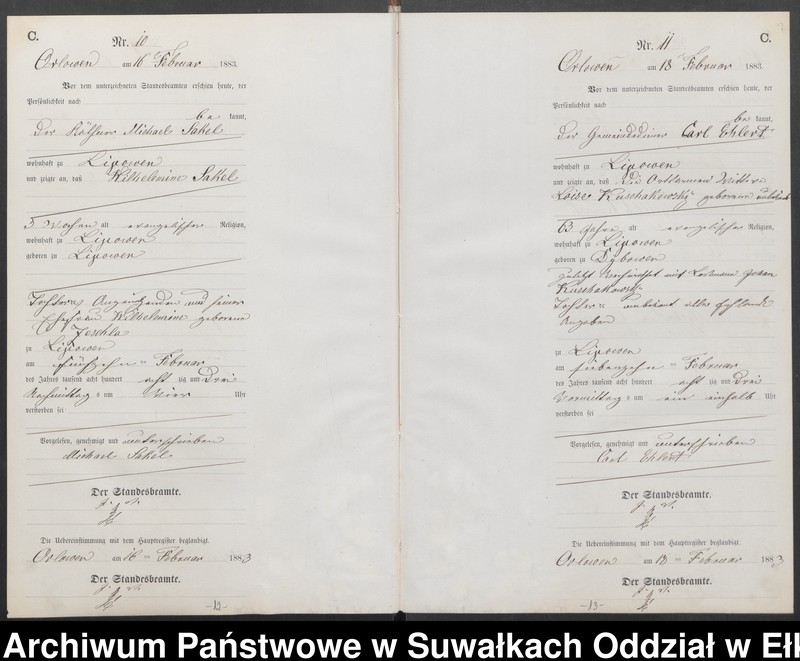 C.
Nr. 10
Orlowen am 16 Februar 1883.
Vor dem unterzeichneten Standesbeamten erschien heute, der
Persönlichkeit nach
be kannt,
der Käthner Michael Sakel
wohnhaft zu Lipowen
und zeigte an, daß Wilhelmine Sakel
3 Wochen alt evangelischer Religion,
wohnhaft zu Lipowen
geboren zu Lipowen
Tochter des Anzeigenden und seiner
Ehefrau Wilhelmine geborene
Jeschka
zu Lipowen
am fünfzehn Februar
des Jahres tausend acht hundert acht zig und drei
Nachmittag s um vier Uhr
verstorben sei
Vorgelesen, genehmigt und unterschrieben
Michael Sakel
Der Standesbeamte.
Die Uebereinstimmung mit dem Hauptregister beglaubigt.
Orlowen am 16 Februar 1883
Der Standesbeamte.
-12-
C.
Nr. 11
Orlowen am 18 Februar 1883.
Vor dem unterzeichneten Standesbeamten erschien heute, der
Persönlichkeit nach
be kannt,
der Gemeindediener Carl Ehlert
wohnhaft zu Lipowen
und zeigte an, daß die Ortsarmen Wittwe
Loise Kuschakowsky geborene unbekannt
63 Jahre alt evangelischer Religion,
wohnhaft zu Lipowen
geboren zu Dybowen
zuletzt verheirathet mit Losmann Johan
Kuschakowsky
Tochter unbekannt alles fehlende
Angaben
zu Lipowen
am siebenzehn Februar
des Jahres tausend acht hundert acht zig und drei
Vormittag s um ein einhalb Uhr
verstorben sei
Vorgelesen, genehmigt und unterschrieben
Carl Ehlert
Der Standesbeamte.
Die Uebereinstimmung mit dem Hauptregister beglaubigt.
Orlowen am 18 Februar 1883
Der Standesbeamte.
-13-
Archiwum Państwowe w Suwałkach Oddział w Ełk